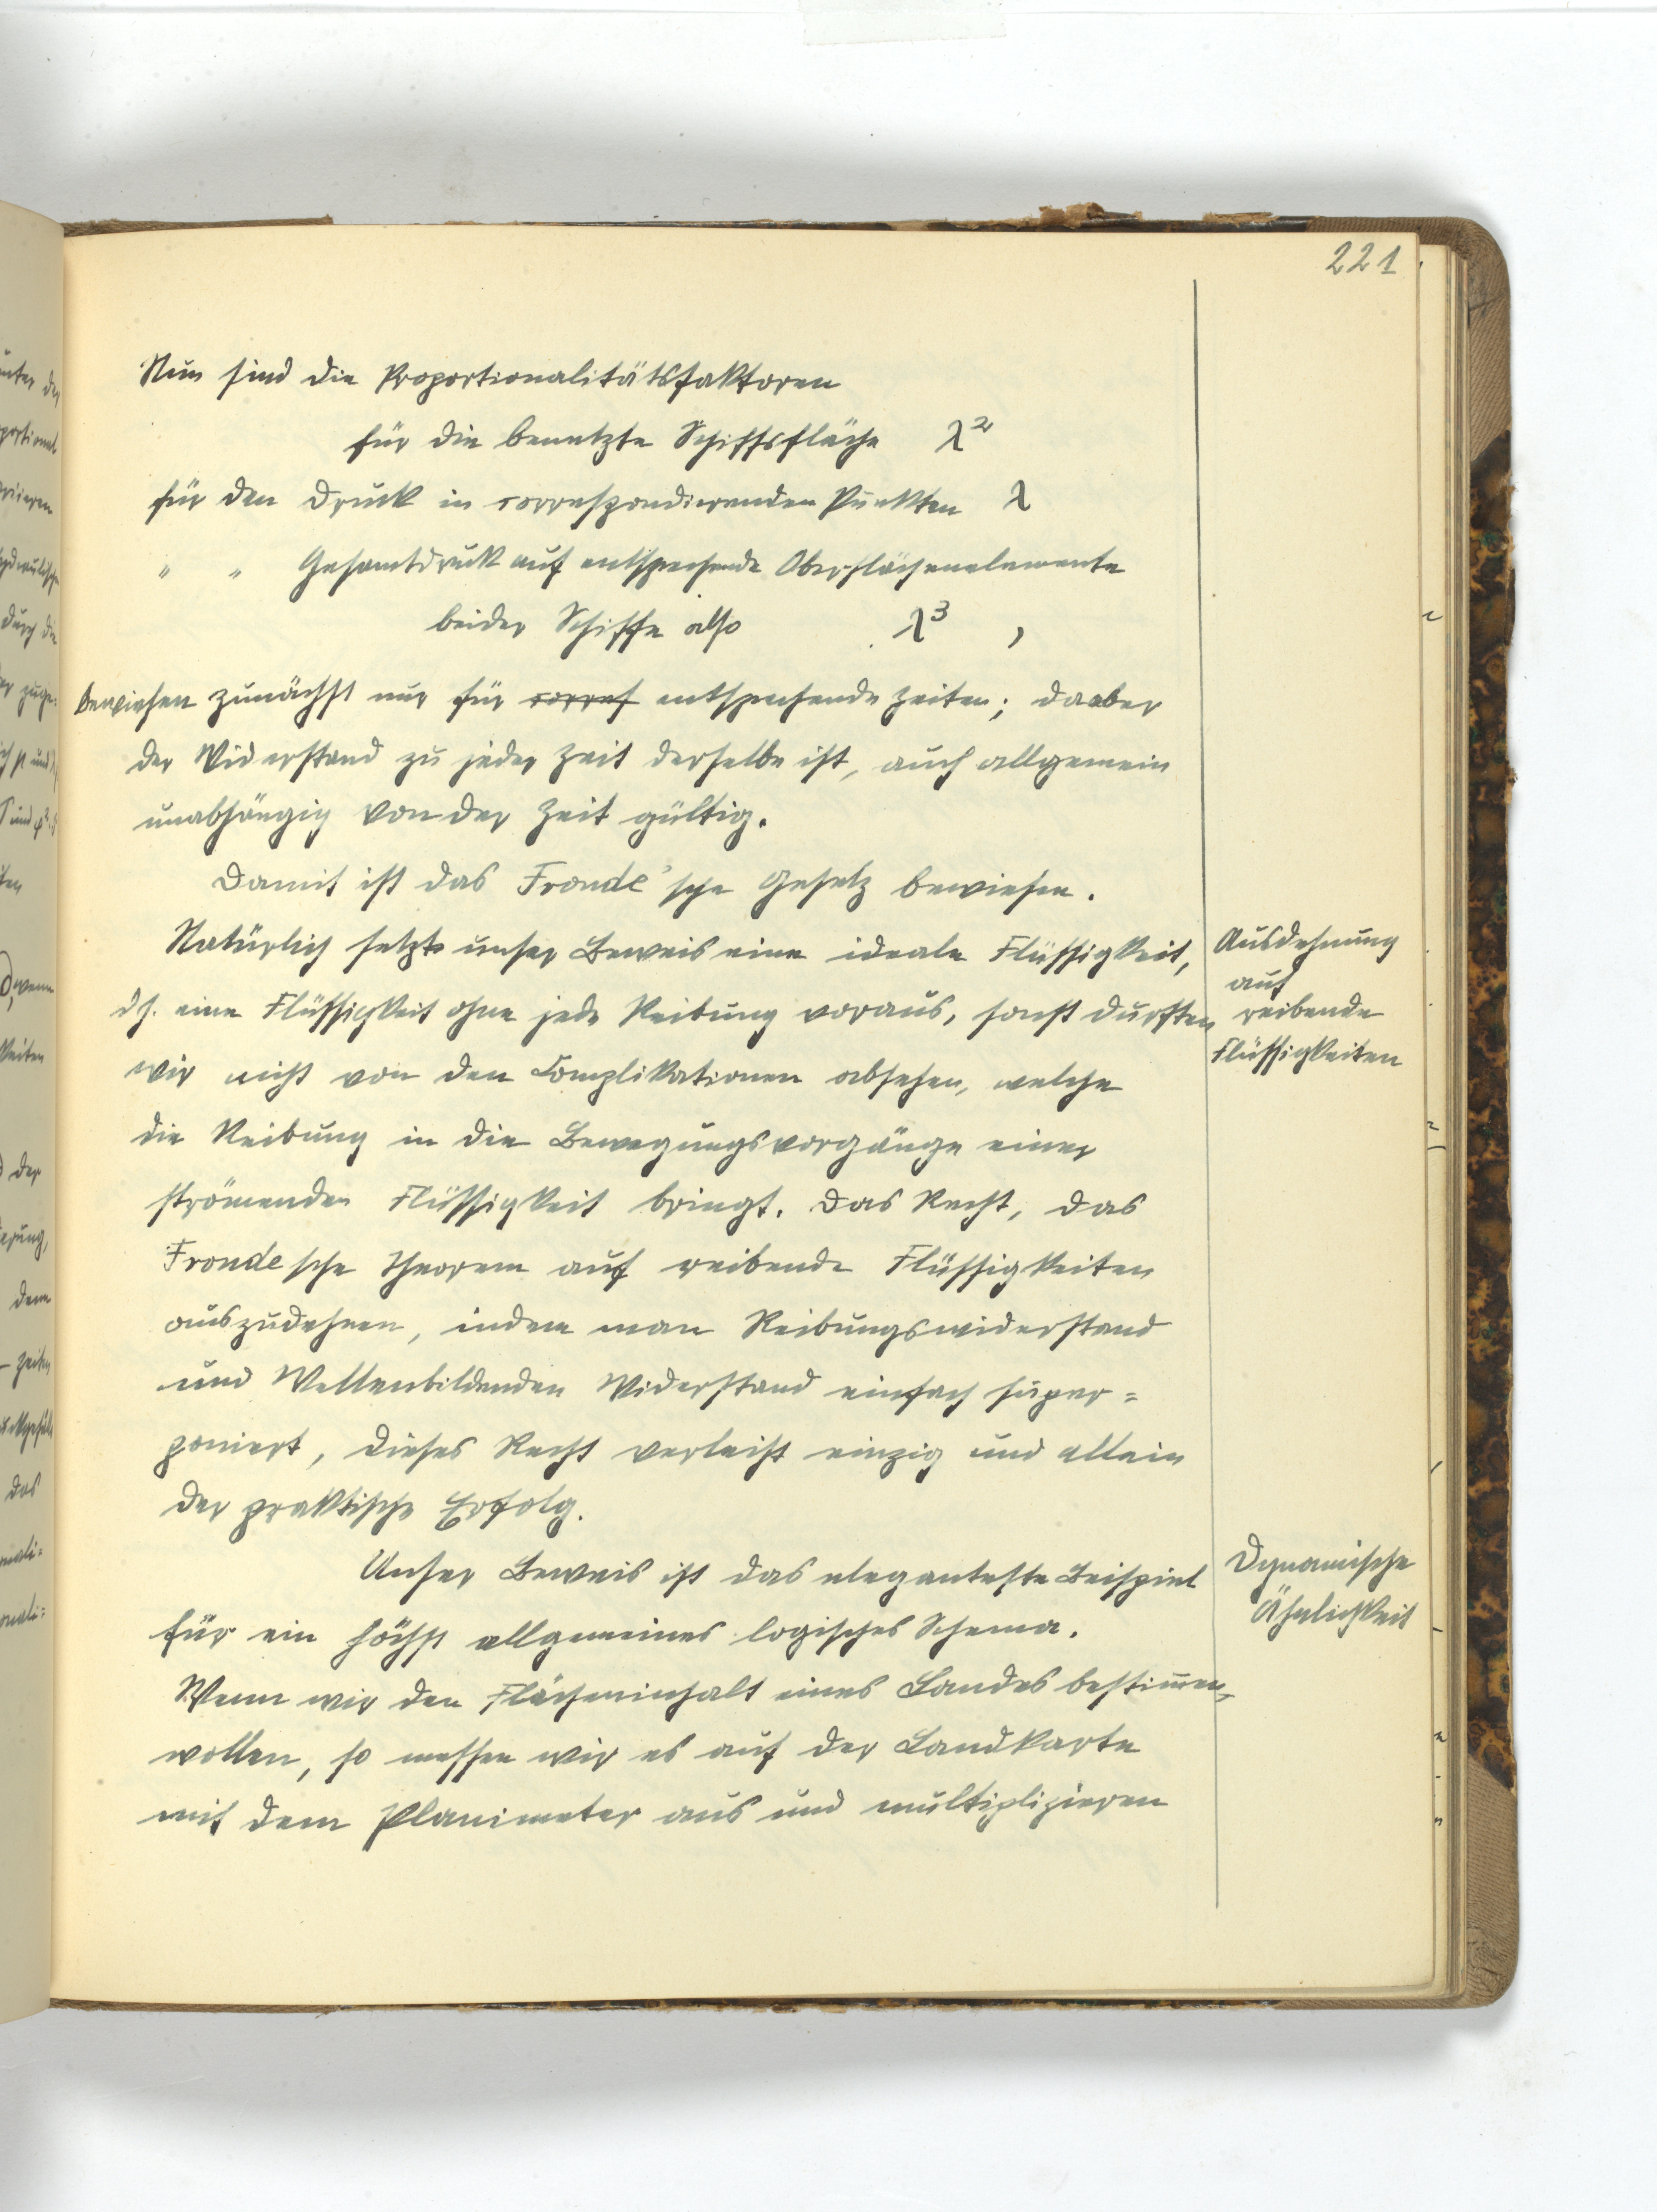 221
Nun sind die Proportionalitätsfaktoren
für die benetzte Schiffsfläche λ²
für den Druck in correspondierenden Punkten λ
" " Gesamtdruck auf entsprechende Oberflächenelemente
beider Schiffe also λ³ ,
bewiesen zunächst nur für corres entsprechende Zeiten; da aber
der Widerstand zu jeder Zeit derselbe ist, auch allgemein
unabhängig von der Zeit gültig.
Damit ist das Froude'sche Gesetz bewiesen.
Natürlich setzt unser Beweis eine ideale Flüssigkeit,
dh. eine Flüssigkeit ohne jede Reibung voraus, sonst durften
wir nicht von den Complikationen absehen, welche
die Reibung in die Bewegungsvorgänge einer
strömenden Flüssigkeit bringt. Das Recht, das
Froudesche Theorem auf reibende Flüssigkeiten
auszudehnen, indem man Reibungswiderstand
und Wellenbildenden Widerstand einfach super=
poniert, dieses Recht verleiht einzig und allein
der praktische Erfolg.
Unser Beweis ist das eleganteste Beispiel
für ein höchst allgemeines logisches Schema.
Wenn wir den Flächeninhalt eines Landes bestim̅en,
wollen, so messen wir es auf der Landkarte
mit dem Planimeter aus und multiplizieren
Ausdehnung
auf
reibende
Flüssigkeiten
Dynamische
Ähnlichkeit